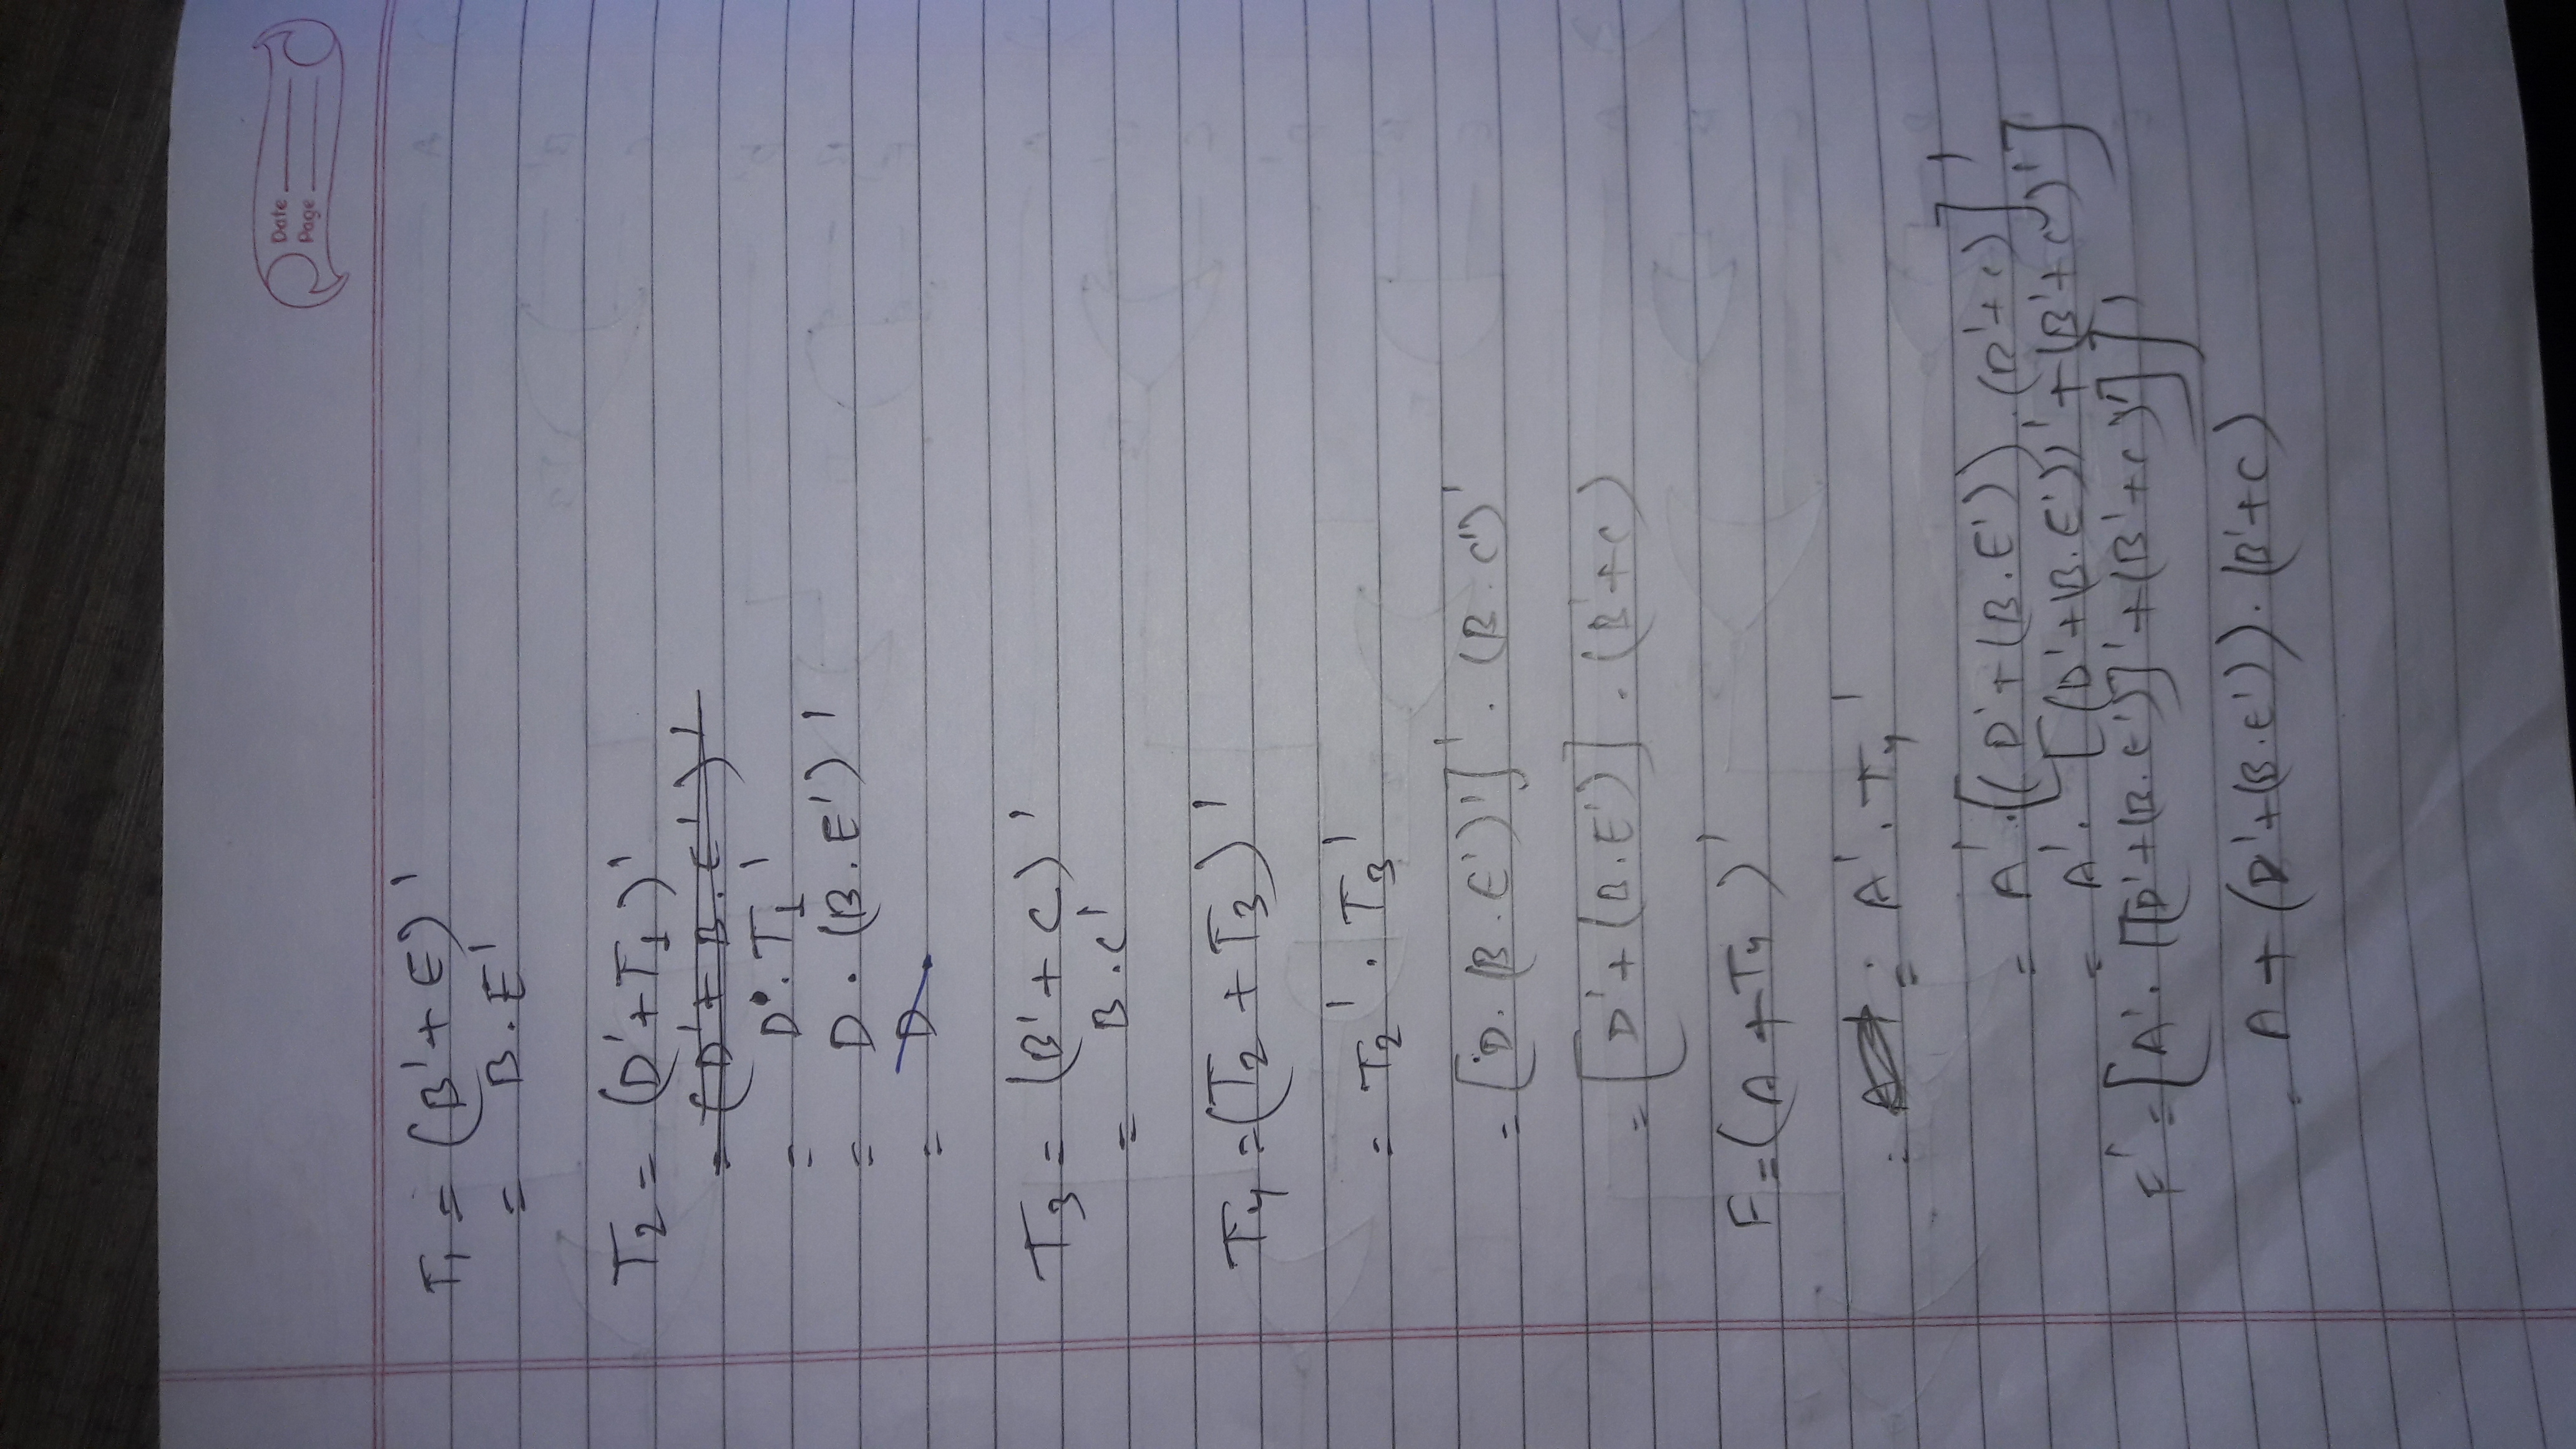 Date
Page
T1 = (B' + E)'
= B . E'
T2 = (D' + T1)'
= (D' + B . E')'
= D . T1'
= D . (B . E')'
= D
T3 = (B' + C)'
= B . C'
T4 = (T2 + T3)'
= T2' . T3'
= [D . (B . E')']' . (B . C')'
= [D' + (B . E')] . (B' + C)
F = (A + T4)'
= A' . T4'
= A' . [(D' + (B . E')) . (B' + C)]'
= A' . [(D' + (B . E'))' + (B' + C)']
F' = [A' . [[D' + (B . E')]' + (B' + C)']]'
A + (D' + (B . E')) . (B' + C)